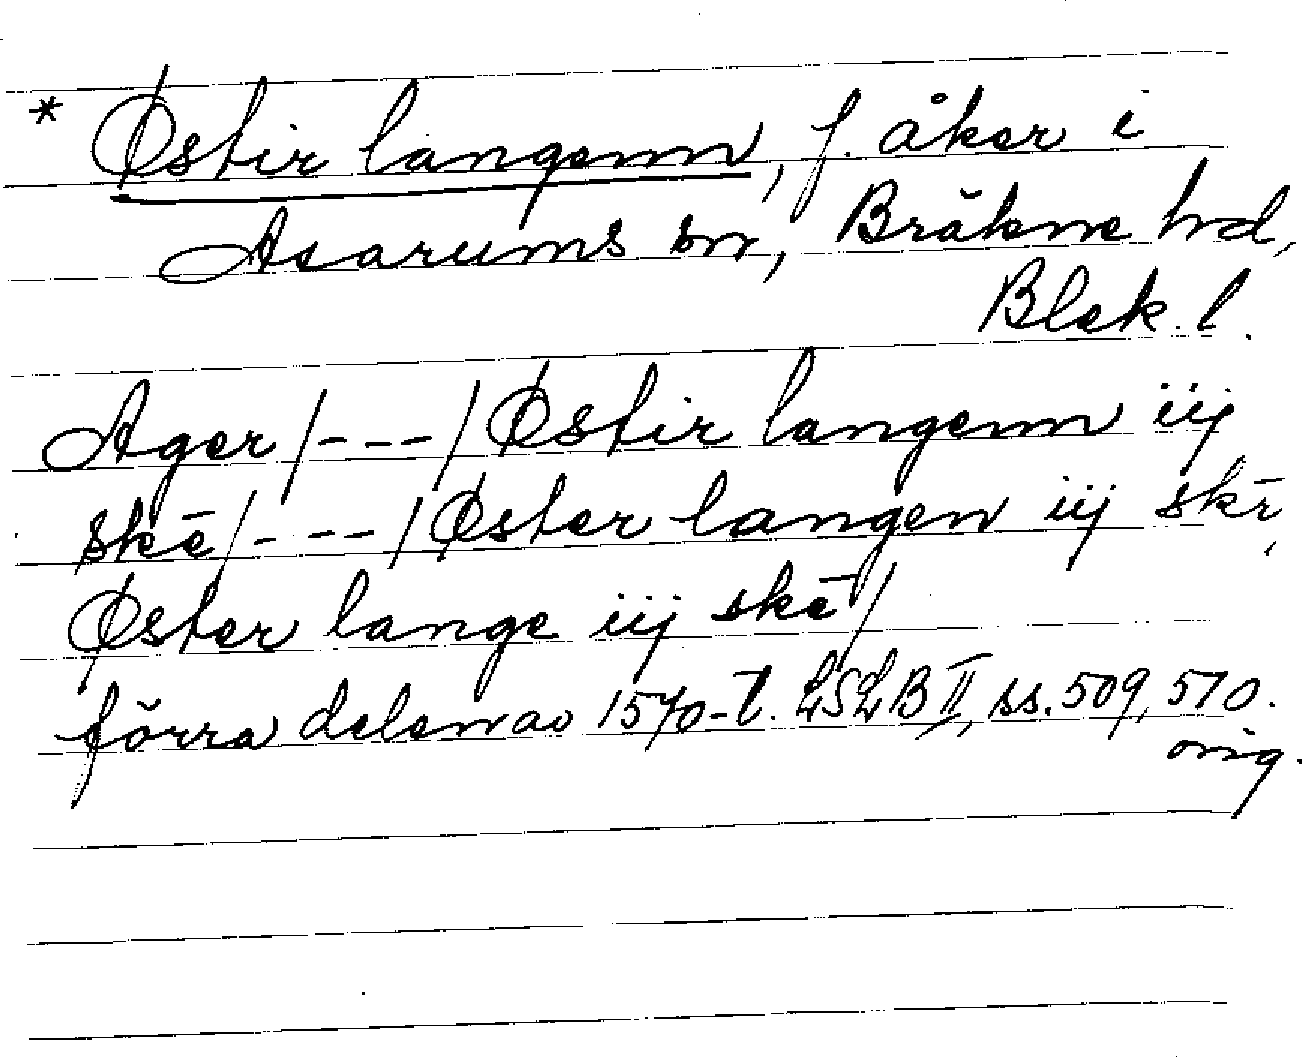 * Østir langenn, f. åker i
Asarums sn, Bräkne hd,
Blek. l.
Ager /---/ Østir langenn iij
skē /---/ Øster langen iij skr̄,
Øster lange iij skē /
förra delen av 1570-t. LSLB II, ss. 509, 510.
orig.